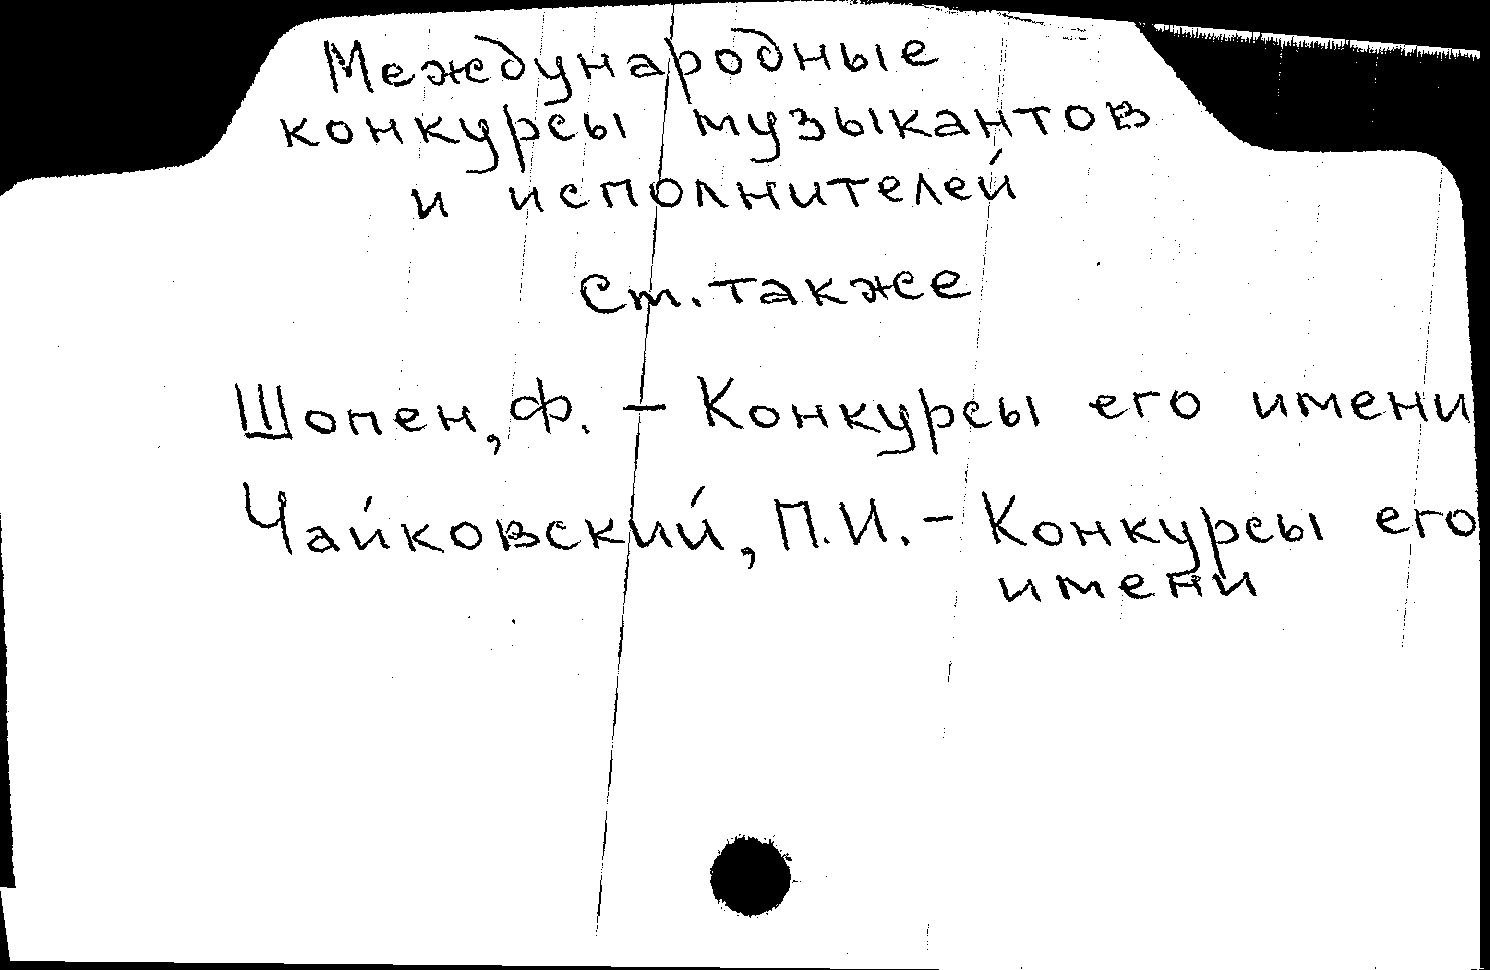 Международные
конкурсы музыкантов
и исполнителей
См. также
Шопен, Ф. — Конкурсы его имени
Чайковский, П.И. — Конкурсы его
имени